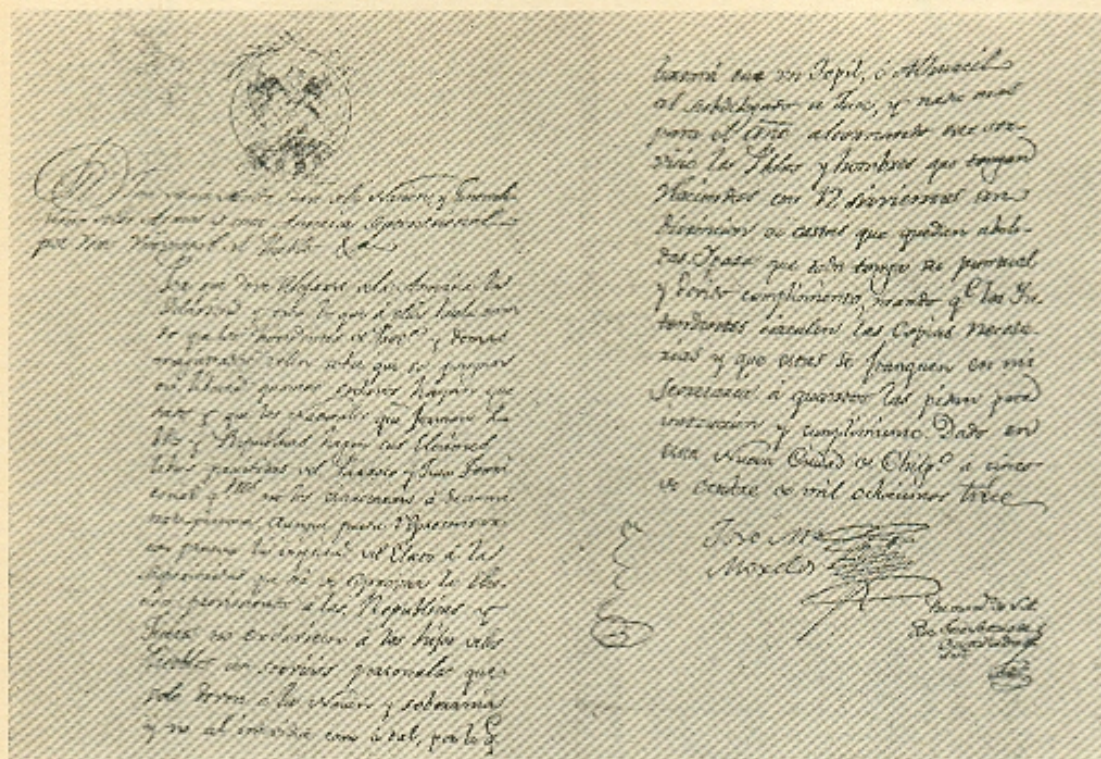 Por que debe alejarse dela America la
Esclavitud y todo lo que á ella huela man-
do que los Intendentes de Prov.ª y demas
magistrados velen sobre que se pongan
en libertad quantos esclavos hayan que
dado y que los Naturales que forman Pu
blos y Republicas hagan sus Elecciones
libres presididas del Parroco y Juez Terri
torial qnes no los coartaran á determi-
nada persona, aunque pueda representar
con prueba la ineptitud del Electo á la
superioridad que ha de aprobar la elec-
cion previniendo á las Republicas y
Jueces no esclavicen á los hijos delos
Pueblos con servicios personales que
solo deven á la Nacion y soberania
y no al individuo como á tal, por lo q.
bastará dar un Topil, ó Alguacil
al Subdelegado o Juez, y nada mas
para el año alternando este ser-
vicio los Pueblos y hombres que tengan
Haciendas con 12 sirvientes sin
distincion de castas que quedan aboli-
das. Y para que todo tenga su puntual
y devido cumplimiento, mando q.e los In-
tendentes circulen las Copias necesa-
rias y que estas se franqueen en mi
Secretaria á quantos las pidan para
instruccion y cumplimiento. Dado en
esta Nueva Ciudad de Chilp.º á cinco
de octubre de mil ochocientos trece
José M.a
Morelos